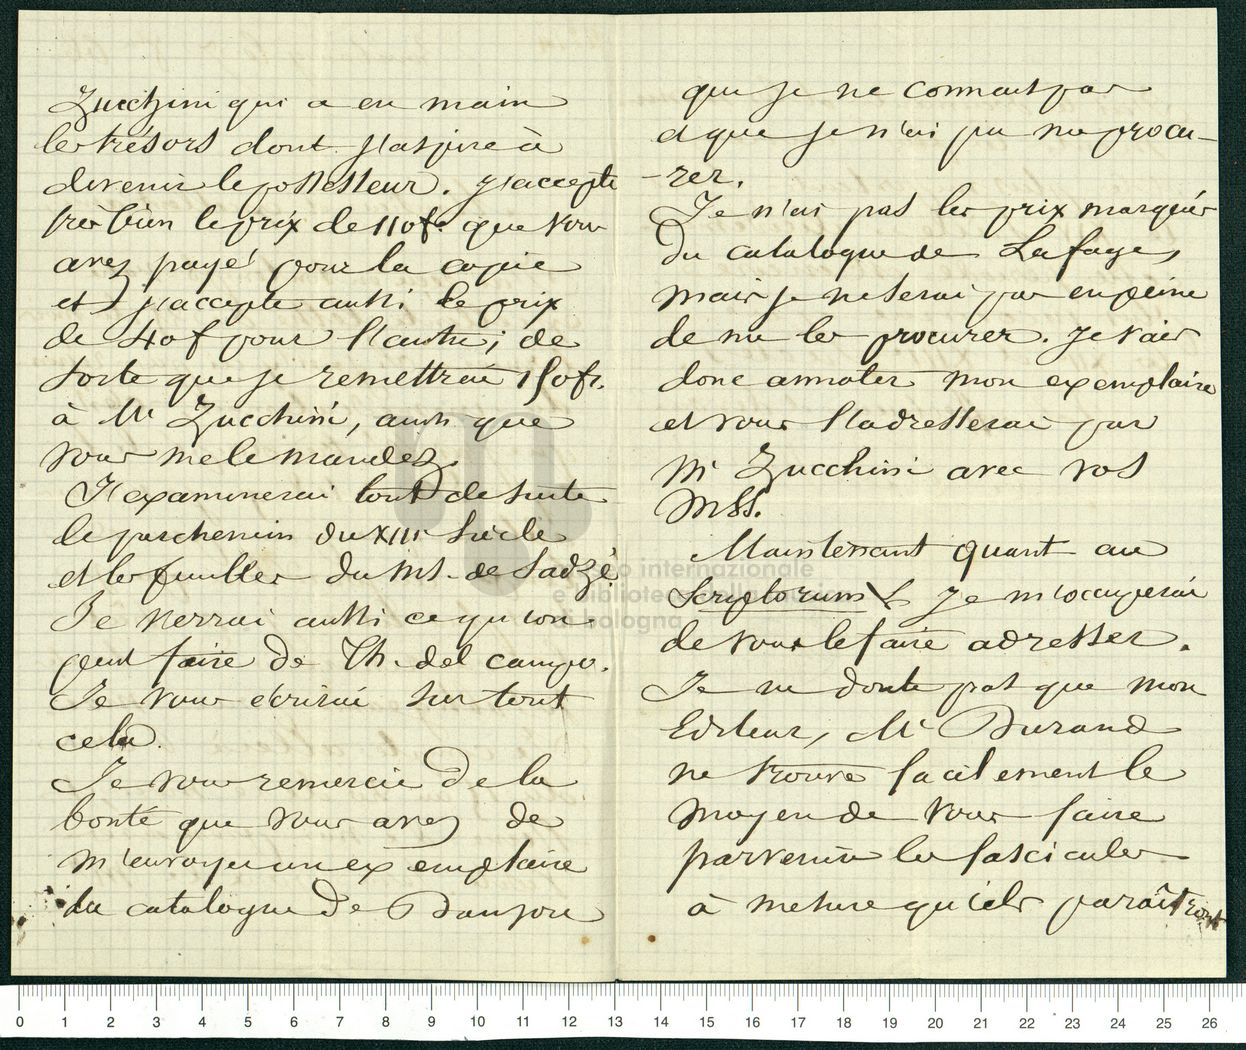 Zucchini qui a en main
les trésors dont j'aspire à
devenir le possesseur. J'accepte
très bien le prix de 110f. que vous
avez payé pour la copie
et j'accepte aussi le prix
de 40f pour l'autre; de
sorte que je remettrai 150fr.
à Mr Zucchini, ainsi que
vous me le mandez.
J'examinerai tout de suite
le parchemin du XIIIe siècle
et les feuilles du ms. de
Je verrai aussi ce qu'on
peut faire de Th. del campo.
Je vous écrirai sur tout
cela.
Je vous remercie de la
bonté que vous avez de
m'envoyer un exemplaire
du catalogue de Danjou
que je ne connait pas
et que je n'ai pu me procu-
-rer.
Je n'ai pas les prix marqués
Du catalogue de Lafage,
mais je ne serai pas en peine
de me les procurer. Je vais
donc annoter mon exemplaire
et vous l'adresserai par
Mr Zucchini avec vos
Mss.
Maintenant quant au
Scriptorum je m'occuperai
de vous le faire adresser.
Je ne doute pas que mon
Editeur, Mr Durand
ne trouve facilement le
moyen de vous faire
parvenir les fascicules
à mesure qu'ils paraîtront
museo internazionale
e biblioteca della musica
di bologna
0 1 2 3 4 5 6 7 8 9 10 11 12 13 14 15 16 17 18 19 20 21 22 23 24 25 26